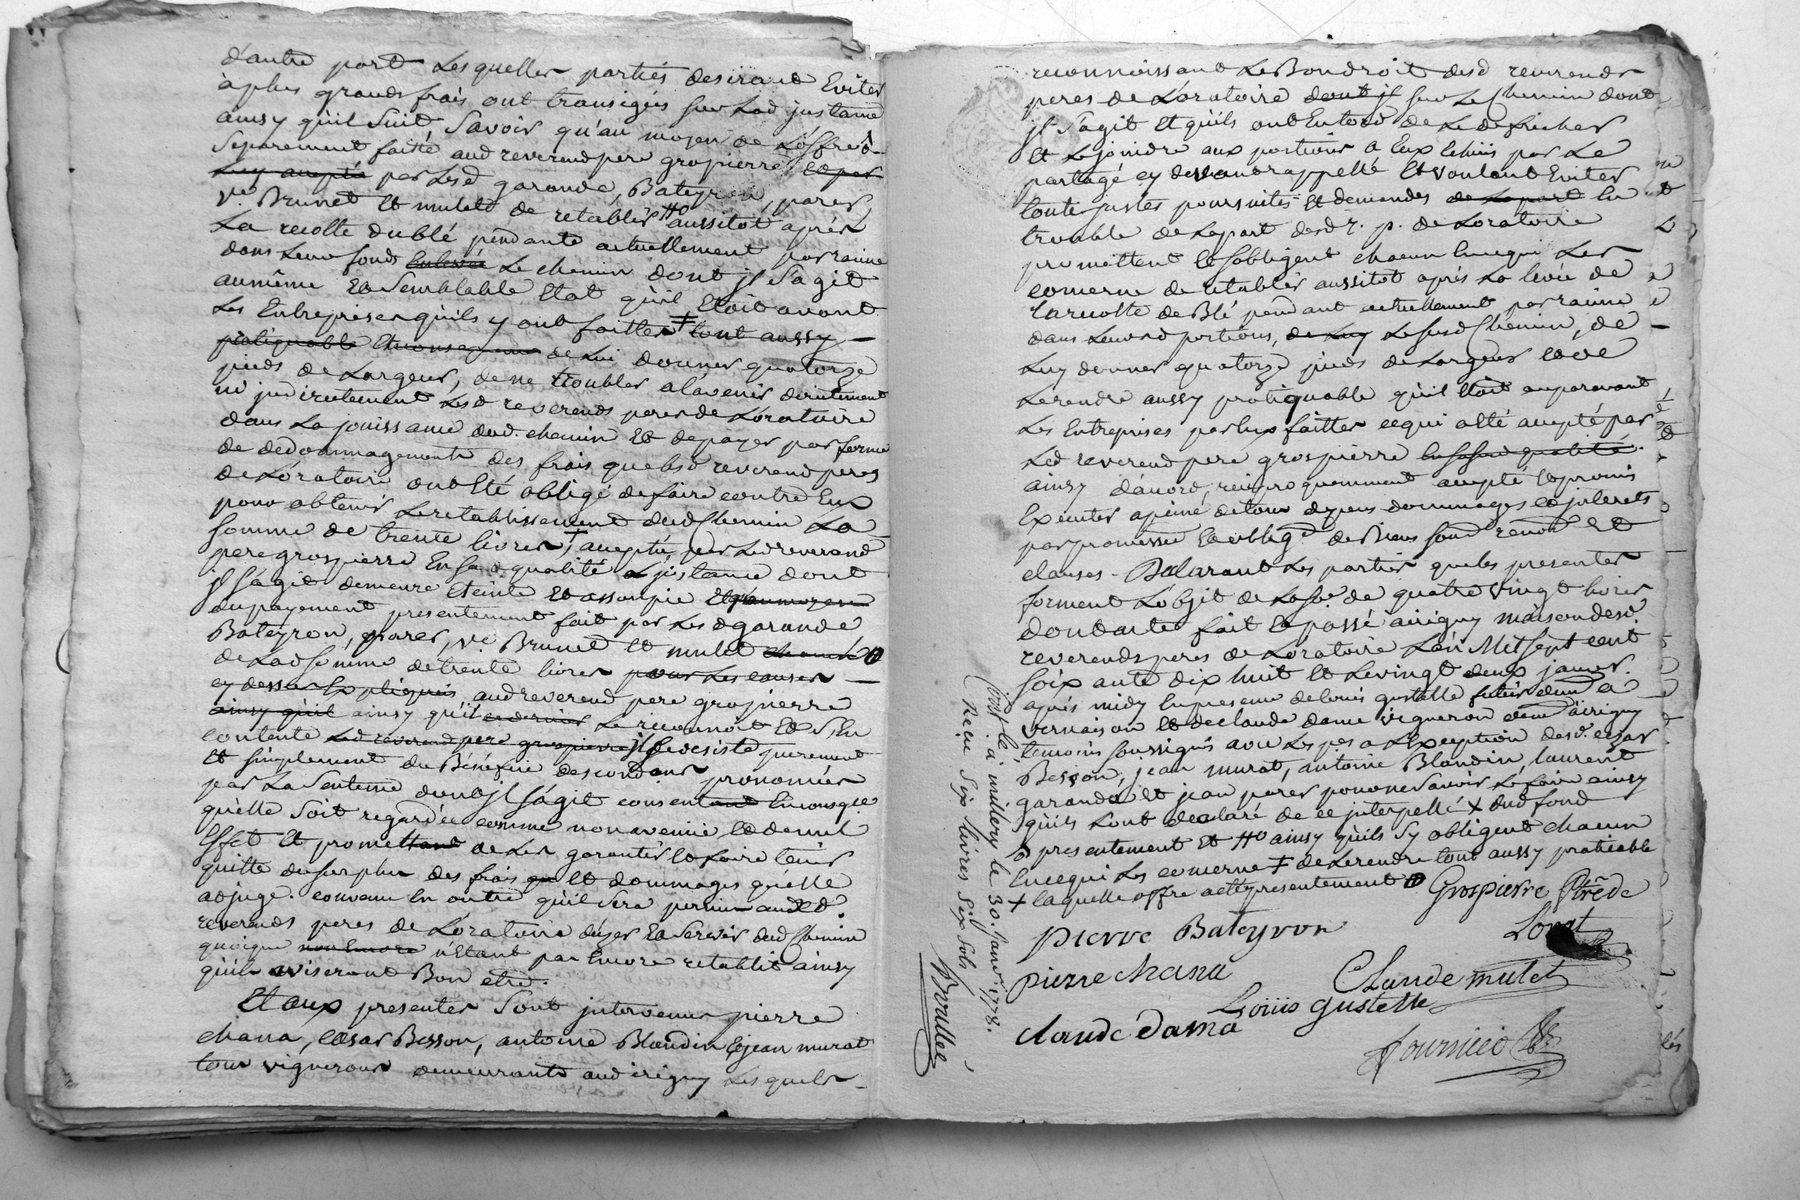 d'autre part Lesquelles parties desirant Eviter
à plus grands frais ont transigés sur Lad justance
ainsy qu'il suit Savoir qu'au moyen de L'offre
Separement faitte aud reverend pere grospierre et par
Luy accepté par Lesd garande, Bateyron, parer,
ve. Brunet et mulet de retablir #o aussitot après
La recolte du blé pendante actuellement par racine
dans Leur fonds Le chemin dont jl s'agit
au même et Semblable Etat qu'il Etoit avant
Les Entreprises qu'ils y ont faittes ‡ tout aussy
pratiquable de Lui donner quatorze
pieds de Largeur, de ne troubler a lavenir directement
ni jndirectement Lesd reverends peres de L'oratoire
dans La jouissance dud. chemin Et de payer par forme
de dedommagement des frais que Lesd reverend peres
de L'oratoire ont Eté obligé de faire contre Eux
pour obtenir Le retablissement dud Chemin La
somme de trente livres, acceptée par Led reverend
pere grospierre En sad qualité L'jnstance dont
jl s'agit demeure Eteinte Et assoupie Et au moyen
du payement presentement fait par Lesd garande
Bateyron, parer, ve. Brunet et mulet
de Lad somme de trente livres pour Les causes
cy dessus Expliquées aud reverend pere grospierre
ainsy qu'il ainsy qu'il Le reconnoit Et s'En
contente Led reverend pere grospierre jl se desiste purement
et simplement du Benefice des cond.ons prononcées
par La Sentence dont jl s'agit consent En consqce
qu'elle soit regardée comme non avenüe et de nul
Effet Et promettant de Les garantir et faire tenir
quitte du surplus des frais qu et dommages qu'elle
adjuge. convenu En outre qu'il sera permis auxd.
reverends peres de L'oratoire d'user et se servir dud Chemin
quoique non Encore n'Etant pas Encore retablit ainsy
qu'ils aviseront Bon etre.
Et aux presentes sont jntervenus pierre
chana, Cesar Besson, antoine Blandin Et jean murat
tous vignerons demeurants aud irigny Lesquels
reconnoissant Le Bon droit desd reverends
peres de L'oratoire dont jl sur Le Chemin dont
jl s'agit Et qu'ils ont Entord de Le defricher
et Le joindre aux portions a Eux Echües par Le
partage cy devant rappellé Et voulant Eviter
toutes justes poursuites Et demandes de La part En
trouble de La part desd r. p. de L'oratoire
promettent et s'obligent chacun En ce qui Les
concerne de retablir aussitot après La levée de
La recolte de Blé pendant actuellement par racine
dans Leursd portions, de Luy Le susd Chemin, de
Luy donner quatorze pieds de Largeur et de
Le rendre aussy pratiquable qu'il Etoit auparavant
Les Entreprises par Eux faittes ce qui a Eté accepté par
Led reverend pere grospierre En sa susd qualité.
ainsy d'accord, reciproquement accepté Et promis
Executer a peine de tous depens dommages et jnterets
par promesse Et obligon de Biens soumd renond et
clauses. Declarant Les parties que Les presentes
forment L'objet de La so. de quatre vingt livres
dont acte fait Et passé a irigny maison desd.
reverends peres de L'oratoire L'an Mil sept cent
soixante dix huit et Le vingt deux janvr.
après midy En presence de Louis gustelle demt a
vernaison et de claude dama vigneron demt a irigny
temoins soussignés avec Les pes a L'Exception desd. cezar
Besson, jean murat, antoine Blandin, laurent
garande et jean parer pour ne savoir Le faire ainsy
qu'ils L'ont declaré de ce jnterpellé x dud fond
‡ presentement et #o ainsy qu'ils s'y obligent chacun
En ce qui Les concerne ‡ de Le rendre tout aussy praticable
x laquelle offre a Eté presentement
Grospierre Ptre de
Lorat
pierre Bateyron
pierre chana
Claude mulet
Loüis gustelle
claude dama
fournier
Contlé. à millery le 30. Janvr. 1778.
Reçu Six livres Six Sols
Bruille